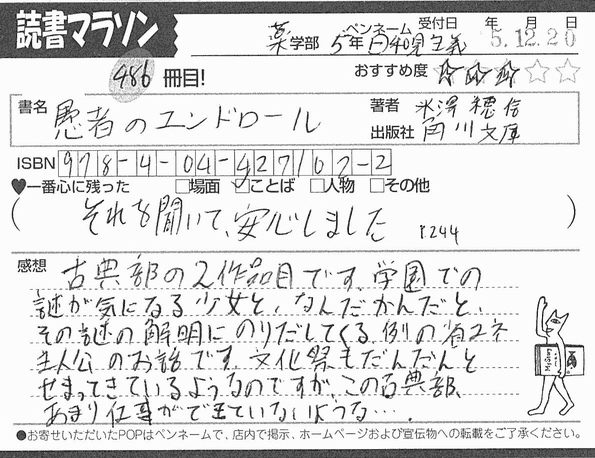 読書マラソン
薬学部 5年 ペンネーム 日和見主義 受付日 年 月 日 5.12.20
486 冊目! おすすめ度
書名 愚者のエンドロール 著者 米澤穂信
出版社 角川文庫
ISBN 978-4-04-427102-2
♥一番心に残った □場面 ☑ことば □人物 □その他
(それを聞いて、安心しました P.244)
感想 古典部の2作品目です。学園での
謎が気になる少女と、なんだかんだと、
その謎の解明にのりだしてくる、例の省エネ
主人公のお話です。文化祭もだんだんと
せまってきているようなのですが、この古典部、
あまり仕事ができていないような…。
●お寄せいただいたPOPはペンネームで、店内で掲示、ホームページおよび宣伝物への転載をご了承ください。